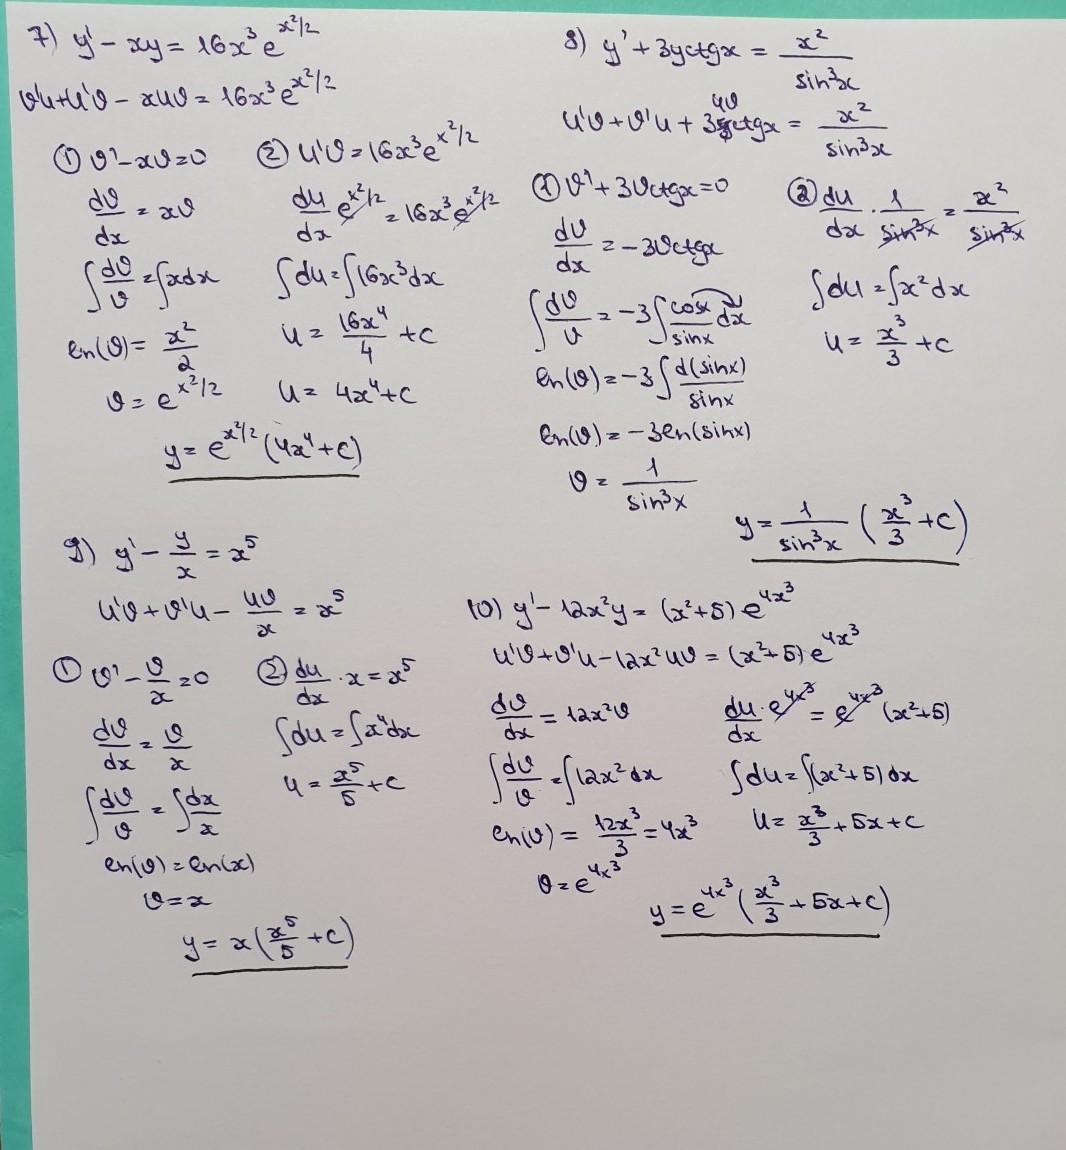 7) y' - xy = 16x³e^(x²/2)
ϑ'u + u'ϑ - xuϑ = 16x³e^(x²/2)
① ϑ' - xϑ = 0
dϑ/dx = xϑ
∫dϑ/ϑ = ∫xdx
ln(ϑ) = x²/2
ϑ = e^(x²/2)
② u'ϑ = 16x³e^(x²/2)
du/dx e^(x²/2) = 16x³e^(x²/2)
∫du = ∫16x³dx
u = 16x⁴/4 + c
u = 4x⁴ + c
y = e^(x²/2) (4x⁴ + c)
8) y' + 3yctgx = x²/sin³x
u'ϑ + ϑ'u + 3uϑctgx = x²/sin³x
① ϑ' + 3ϑctgx = 0
dϑ/dx = -3ϑctgx
∫dϑ/ϑ = -3∫cosx/sinx dx
ln(ϑ) = -3∫d(sinx)/sinx
ln(ϑ) = -3ln(sinx)
ϑ = 1/sin³x
② du/dx · 1/sin³x = x²/sin³x
∫du = ∫x²dx
u = x³/3 + c
y = 1/sin³x (x³/3 + c)
9) y' - y/x = x⁵
u'ϑ + ϑ'u - uϑ/x = x⁵
① ϑ' - ϑ/x = 0
dϑ/dx = ϑ/x
∫dϑ/ϑ = ∫dx/x
ln(ϑ) = ln(x)
ϑ = x
② du/dx · x = x⁵
∫du = ∫x⁴dx
u = x⁵/5 + c
y = x(x⁵/5 + c)
10) y' - 12x²y = (x²+5)e^(4x³)
u'ϑ + ϑ'u - 12x²uϑ = (x²+5)e^(4x³)
dϑ/dx = 12x²ϑ
∫dϑ/ϑ = ∫12x²dx
ln(ϑ) = 12x³/3 = 4x³
ϑ = e^(4x³)
du/dx · e^(4x³) = e^(4x³)(x²+5)
∫du = ∫(x²+5)dx
u = x³/3 + 5x + c
y = e^(4x³) (x³/3 + 5x + c)